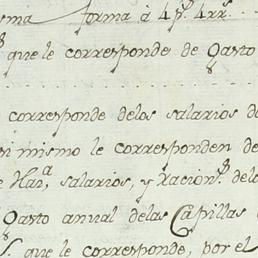 sma forma à 4 p.s 4 rr.
que le corresponde de Gasto
corresponde delos salarios d
si mismo le corresponden de
e Haz.a, salarios, y racion.s del
Gasto anual delas Capillas
S. que le corresponde, por el